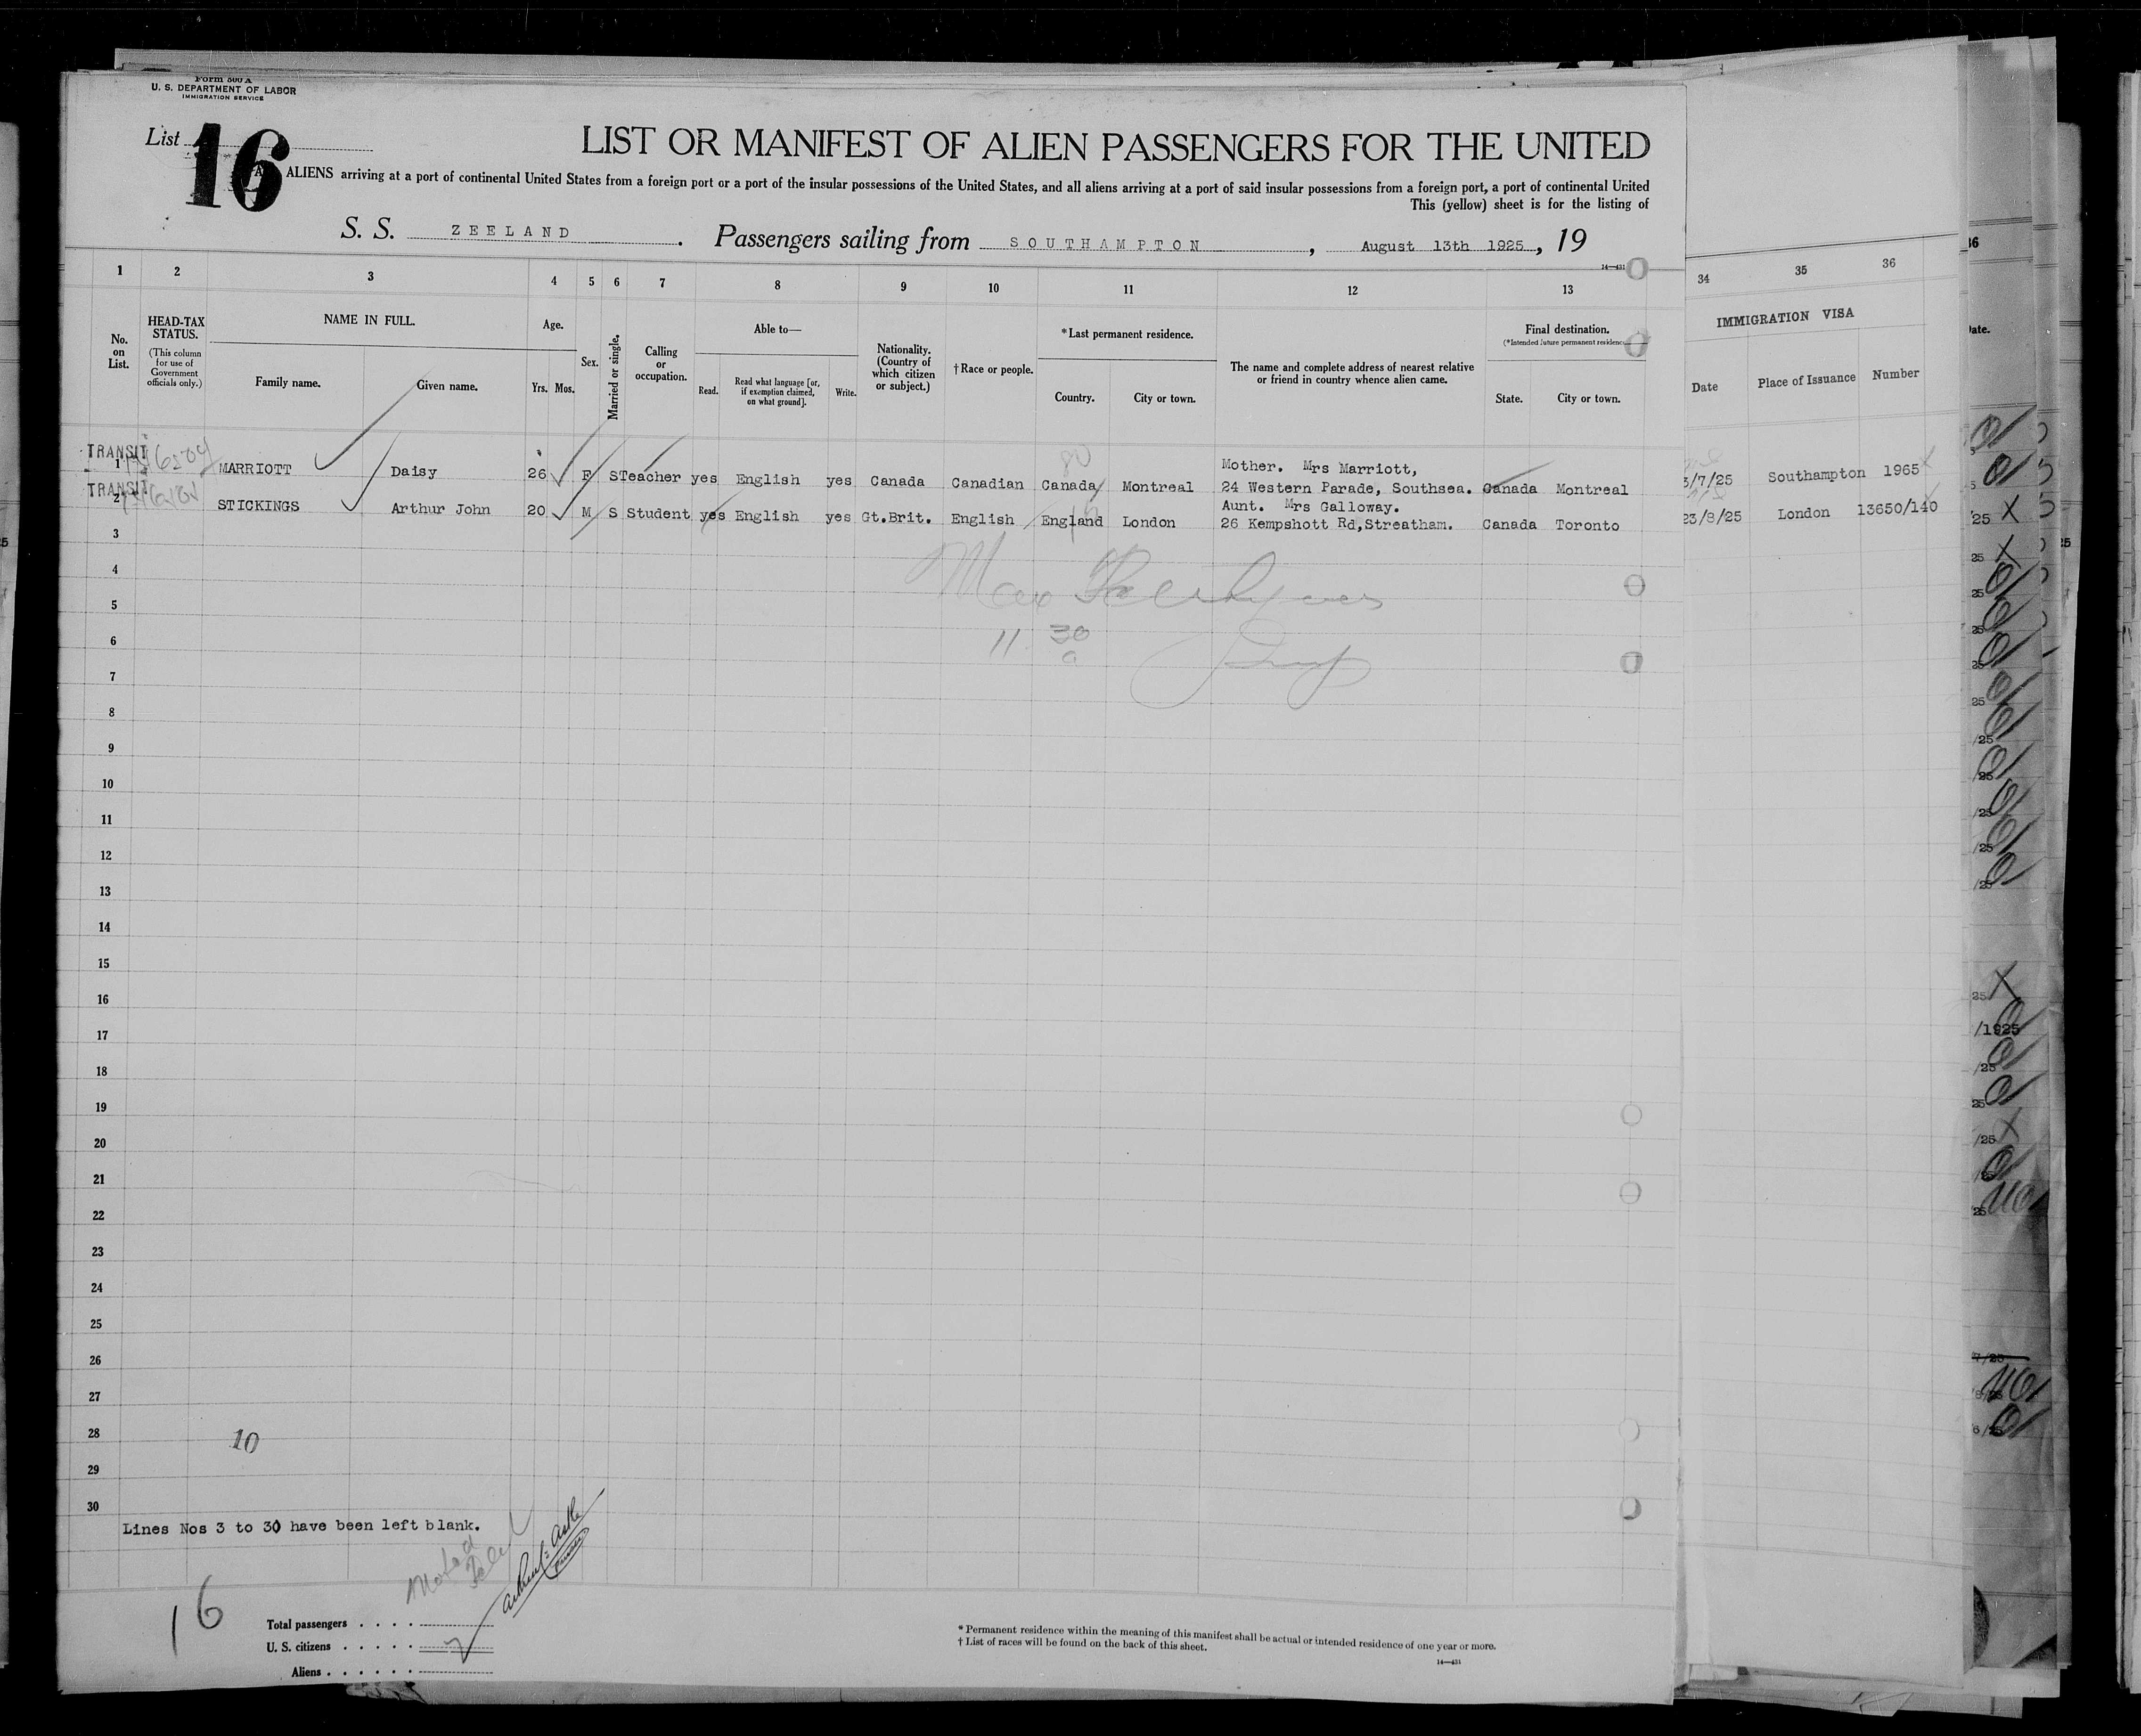 Form 500 A
U. S. DEPARTMENT OF LABOR
IMMIGRATION SERVICE
List 16
LIST OR MANIFEST OF ALIEN PASSENGERS FOR THE UNITED
ALIENS arriving at a port of continental United States from a foreign port or a port of the insular possessions of the United States, and all aliens arriving at a port of said insular possessions from a foreign port, a port of continental United
This (yellow) sheet is for the listing of
S. S. ZEELAND. Passengers sailing from SOUTHAMPTON, August 13th 1925, 19
14—431
1 2 3 4 5 6 7 8 9 10 11 12 13 34 35 36
No. on List.
HEAD-TAX STATUS.
(This column for use of Government officials only.)
NAME IN FULL.
Family name. Given name.
Age.
Yrs. Mos.
Sex.
Married or single.
Calling or occupation.
Able to—
Read. Read what language [or, if exemption claimed, on what ground]. Write.
Nationality. (Country of which citizen or subject.)
†Race or people.
*Last permanent residence.
Country. City or town.
The name and complete address of nearest relative or friend in country whence alien came.
Final destination.
(*Intended future permanent residence
State. City or town.
IMMIGRATION VISA
Date Place of Issuance Number
TRANSIT
1 MARRIOTT Daisy 26 F S Teacher yes English yes Canada Canadian Canada Montreal Mother. Mrs Marriott, 24 Western Parade, Southsea. Canada Montreal 3/7/25 Southampton 1965
TRANSIT
2 STICKINGS Arthur John 20 M S Student yes English yes Gt.Brit. English England London Aunt. Mrs Galloway. 26 Kempshott Rd,Streatham. Canada Toronto 23/8/25 London 13650/140
3
4
5
6
11 30 a
7
8
9
10
11
12
13
14
15
16
17
18
19
20
21
22
23
24
25
26
27
28
10
29
30
Lines Nos 3 to 30 have been left blank.
16
Total passengers
U. S. citizens
Aliens
* Permanent residence within the meaning of this manifest shall be actual or intended residence of one year or more.
† List of races will be found on the back of this sheet.
14—431